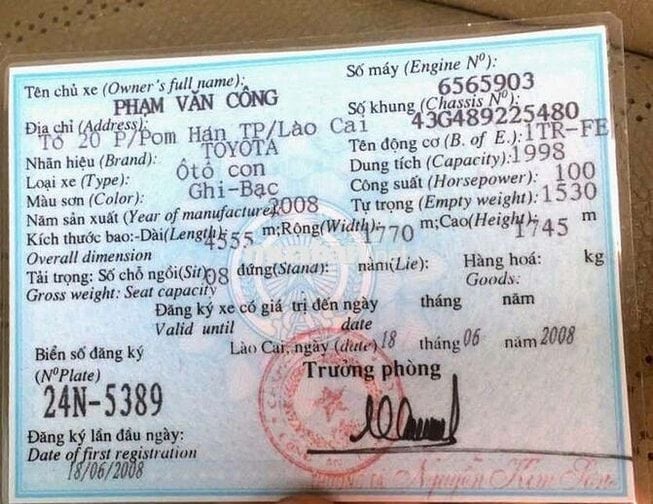 Tên chủ xe (Owner's full name):
PHẠM VĂN CÔNG
Địa chỉ (Address):
Tổ 20 P/Pom Hán TP/Lào Cai
Nhãn hiệu (Brand): TOYOTA
Loại xe (Type): Ôtô con
Màu sơn (Color): Ghi-Bạc
Năm sản xuất (Year of manufacture) 2008
Số máy (Engine Nº): 6565903
Số khung (Chassis Nº): 43G489225480
Tên động cơ (B. of E.): 1TR-FE
Dung tích (Capacity): 1998
Công suất (Horsepower): 100
Tự trọng (Empty weight): 1530
Kích thước bao:-Dài(Length) 4555 m;Rộng(Width): 1770 m;Cao(Height) 1745 m
Overall dimension
Tải trọng: Số chỗ ngồi(Sit) 08 đứng(Stand): nằm(Lie): Hàng hoá: kg
Gross weight: Seat capacity Goods:
Đăng ký xe có giá trị đến ngày tháng năm
Valid until date
Lào Cai, ngày (date) 18 tháng 06 năm 2008
Trưởng phòng
Biển số đăng ký
(Nº Plate)
24N-5389
Đăng ký lần đầu ngày:
Date of first registration
18/06/2008
Nguyễn Kim Sơn